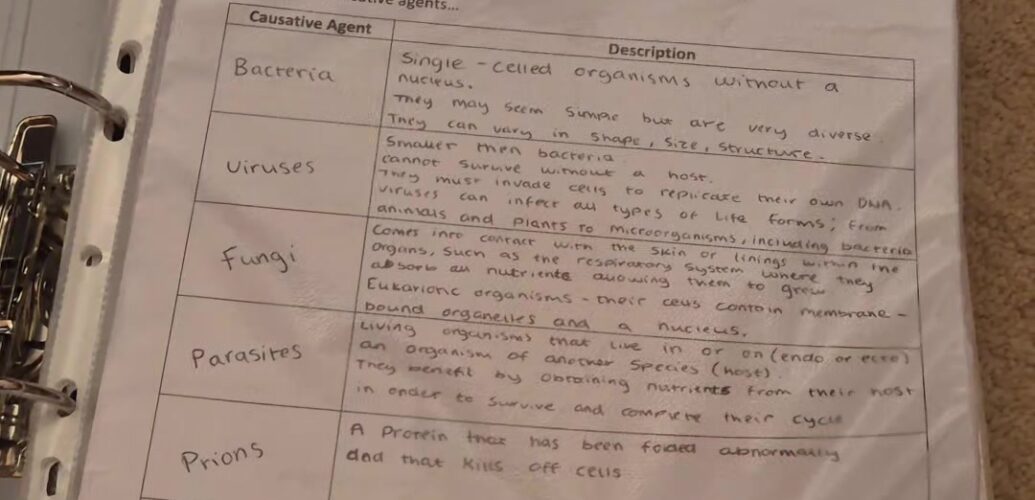 agents...
Causative Agent
Description
Bacteria
Single - celled organisms without a
nucleus.
They may seem simple but are very diverse.
They can vary in shape, size, structure.
Viruses
Smaller then bacteria
cannot survive without a host.
They must invade cells to replicate their own DNA.
Viruses can infect all types of life forms; from
animals and plants to microorganisms, including bacteria
Fungi
Comes into contact with the skin or linings within the
organs, such as the respiratory system where they
absorb all nutrients allowing them to grow
Eukarionic organisms - their cells contain membrane -
bound organelles and a nucleus.
Parasites
Living organisms that live in or on (endo or ecto)
an organism of another species (host).
They benefit by obtaining nutrients from their host
in order to survive and complete their cycle
Prions
A Protein that has been folded abnormally
and that kills off cells